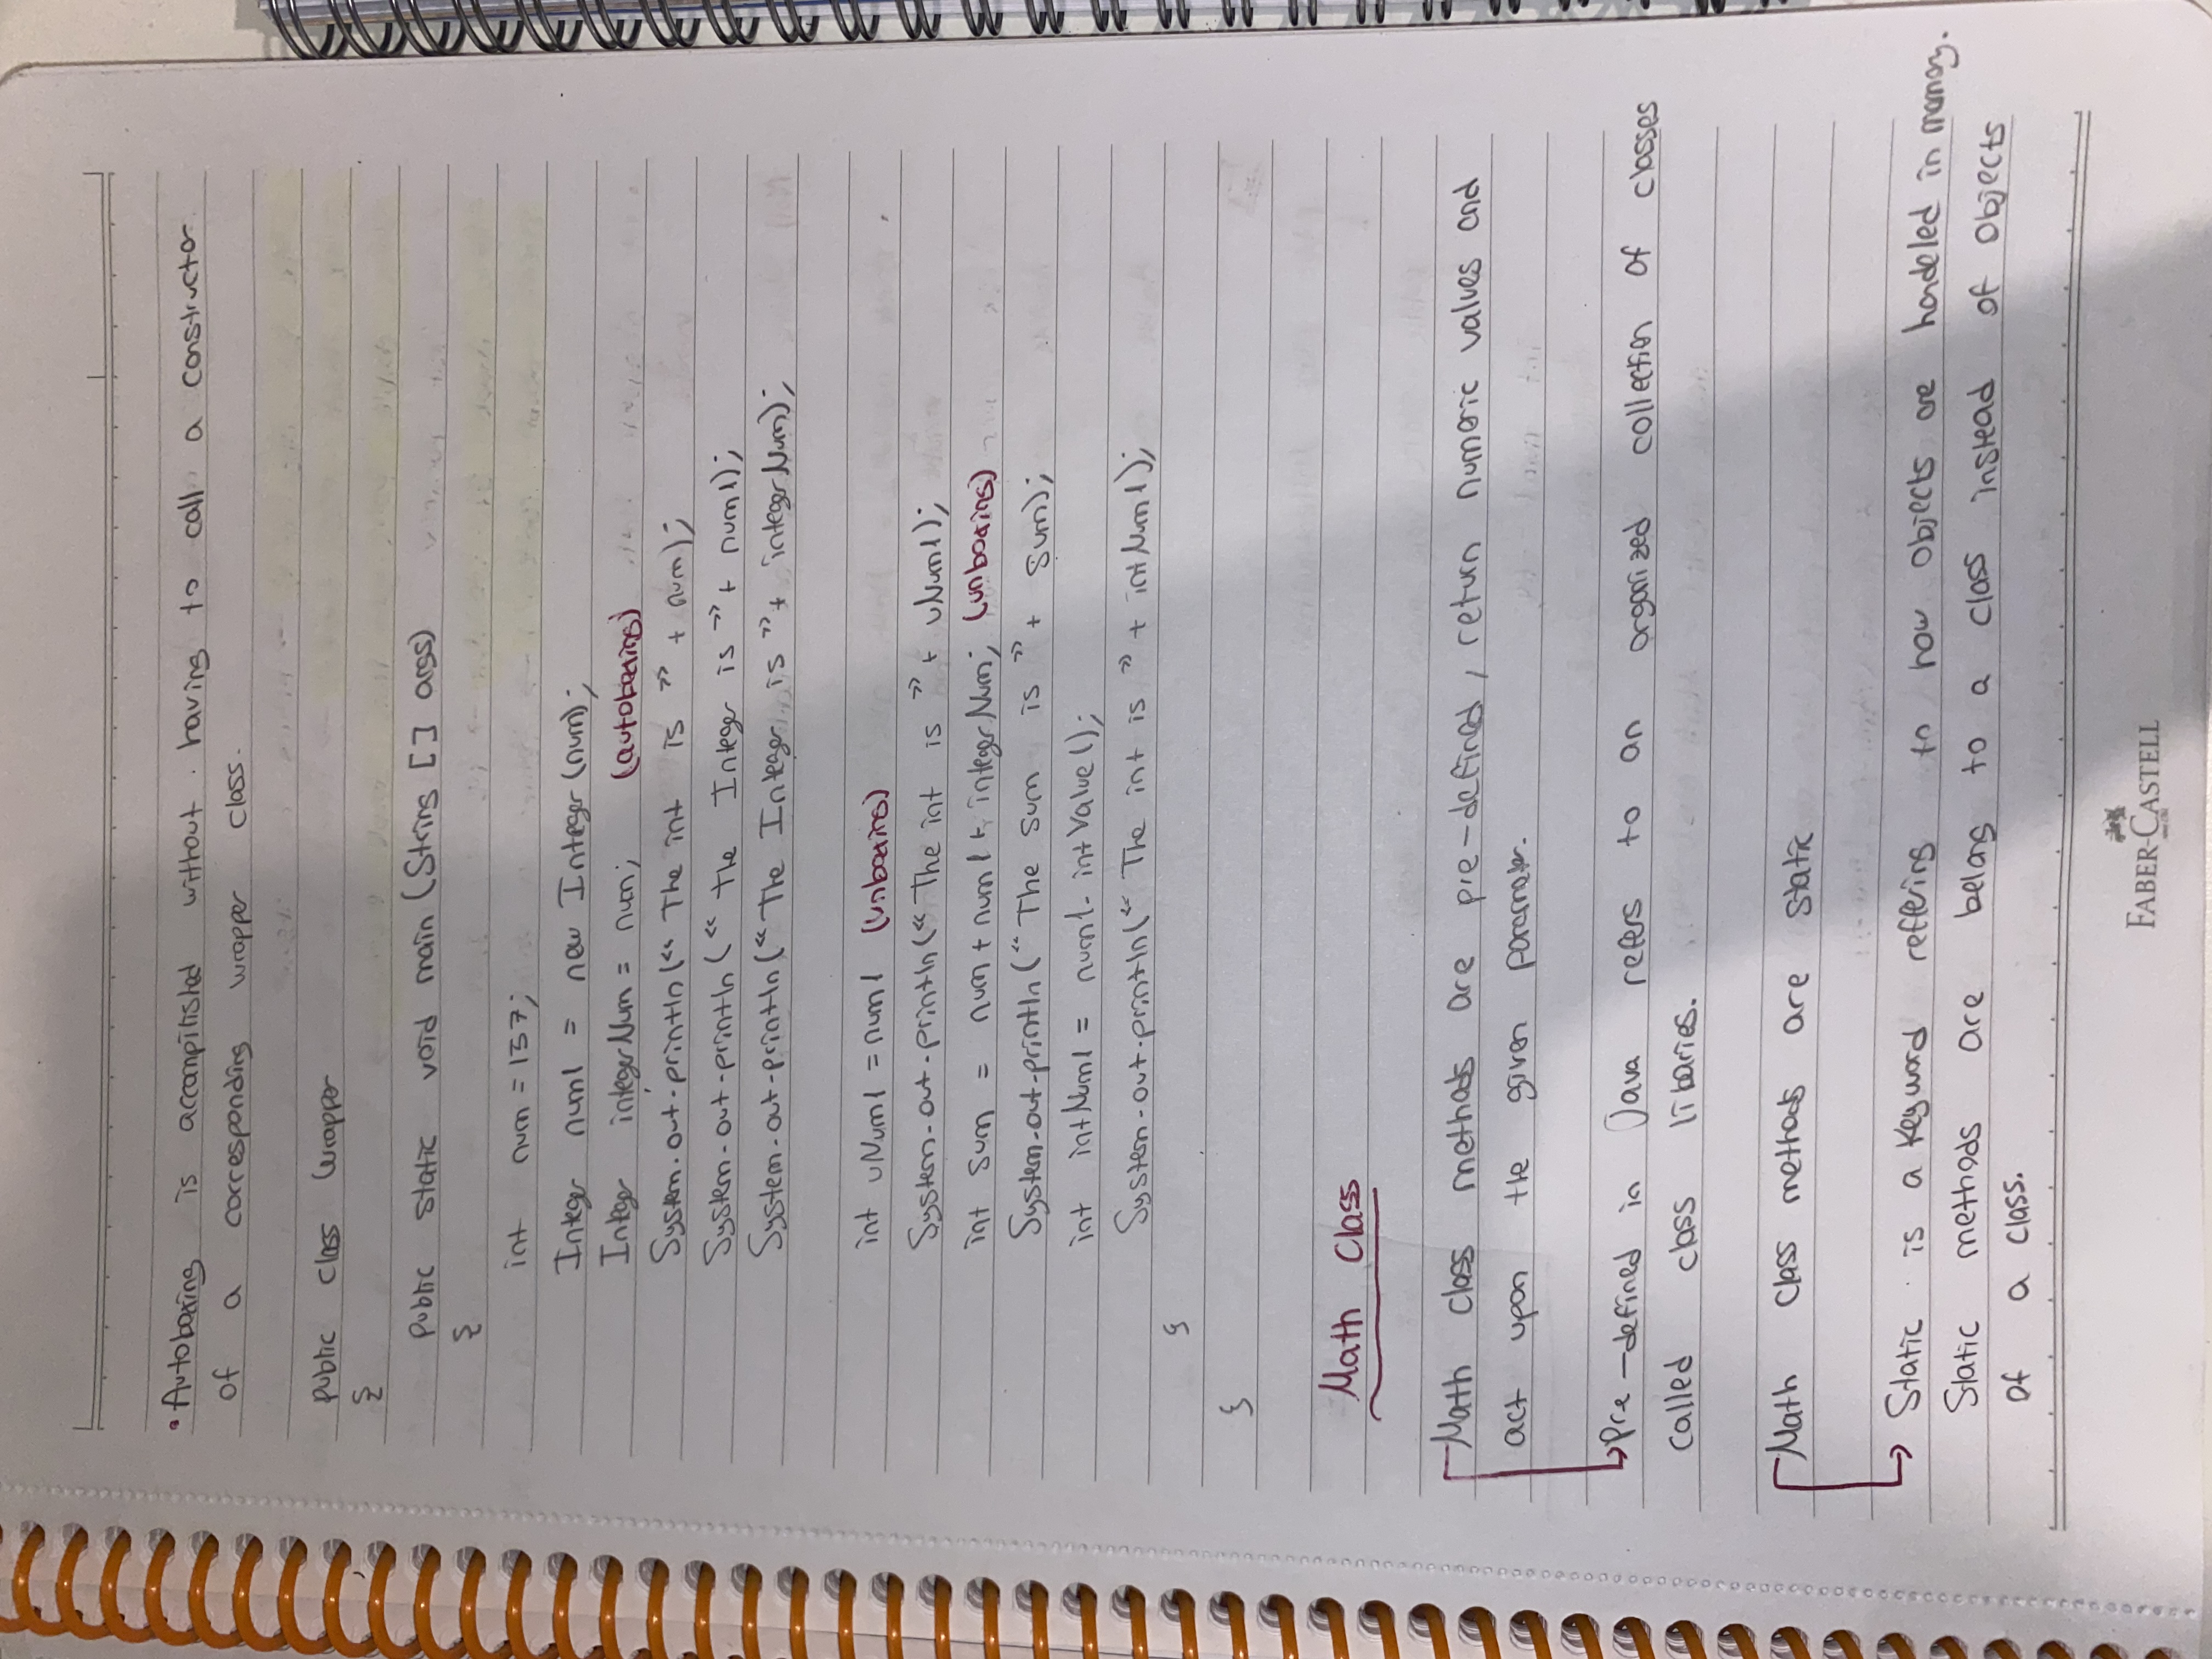 • Autoboxing is accomplished without having to call a constructor
of a corresponding wrapper class.
public class Wrapper
{
public static void main (String [] args)
{
int num = 157;
Integer num1 = new Integer (num);
Integer integerNum = num; (autoboxing)
System.out.println (“ The int is ” + num);
System.out.println (“ The Integer is ” + num1);
System.out.println (“ The Integer is ” + integerNum);
int uNum1 = num1 (unboxing)
System.out.println (“ The int is ” + uNum1);
int sum = num + num1 + integerNum; (unboxing)
System.out.println (“ The sum is ” + sum);
int intNum1 = num1.intValue();
System.out.println (“ The int is ” + intNum1);
}
}
Math Class
Math class methods are pre-defined, return numeric values and
act upon the given parameter.
Pre-defined in Java refers to an organized collection of classes
called class libaries.
Math class methods are static
Static is a keyword reffering to how objects are handeled in memory.
Static methods are belong to a class instead of objects
of a class.
FABER-CASTELL